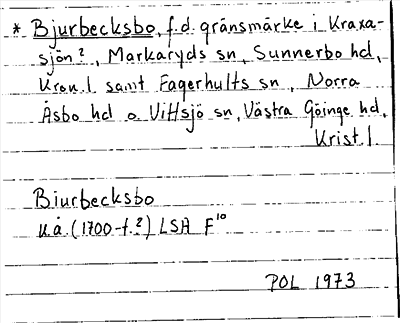 * Bjurbecksbo, f.d. gränsmärke i Kraxa-
sjön?, Markaryds sn, Sunnerbo hd,
Kron.l. samt Fagerhults sn, Norra
Åsbo hd o. Vittsjö sn, Västra Göinge hd,
Krist.l.
Biurbecksbo
u.å. (1700-t.?) LSA F¹⁰
POL 1973